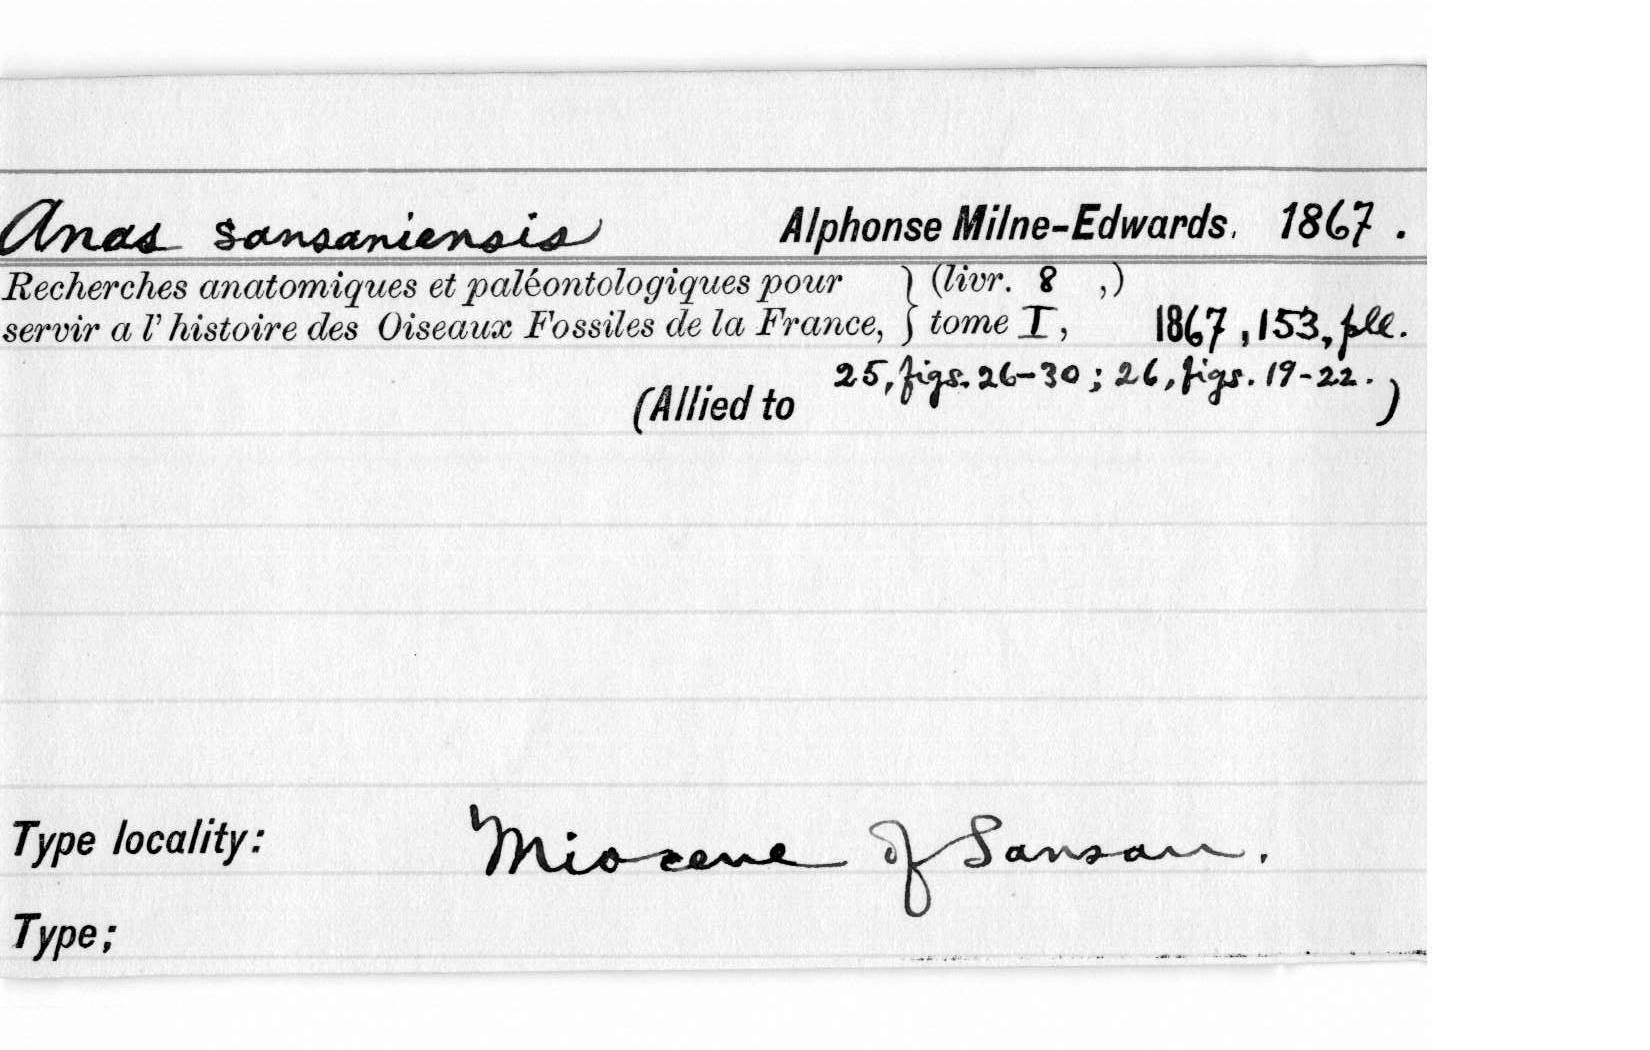 Anas sansaniensis Alphonse Milne-Edwards, 1867.
Recherches anatomiques et paléontologiques pour } (livr. 8 ,)
servir a l'histoire des Oiseaux Fossiles de la France, } tome I, 1867, 153, pll.
25, figs. 26-30; 26, figs. 19-22.
(Allied to )
Type locality: Miocene of Sansan.
Type;